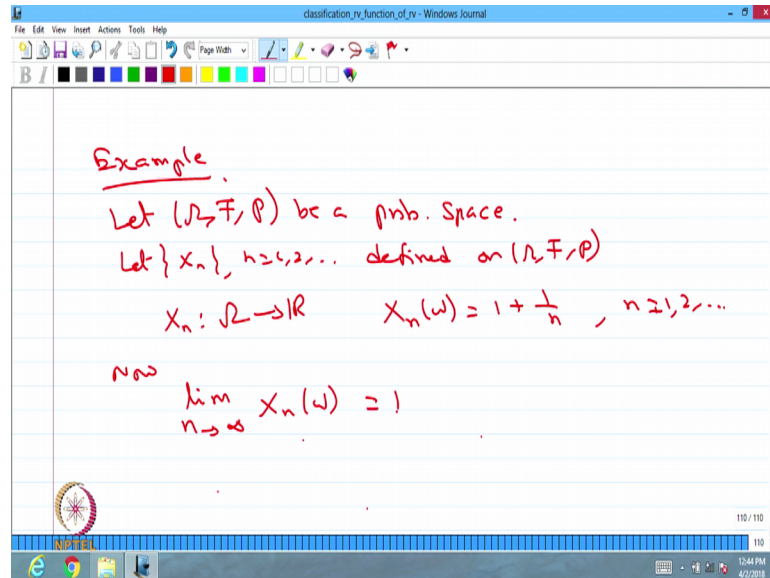 classification_rv_function_of_rv - Windows Journal
File Edit View Insert Actions Tools Help
Page Width
B I
Example
Let (Ω, F, P) be a prob. space.
Let { Xn }, n=1,2,... defined on (Ω, F, P)
Xn : Ω → IR Xn(ω) = 1 + 1/n , n=1,2,...
Now
lim n→∞ Xn(ω) = 1
110 / 110
NPTEL
110
12:44 PM
4/2/2018